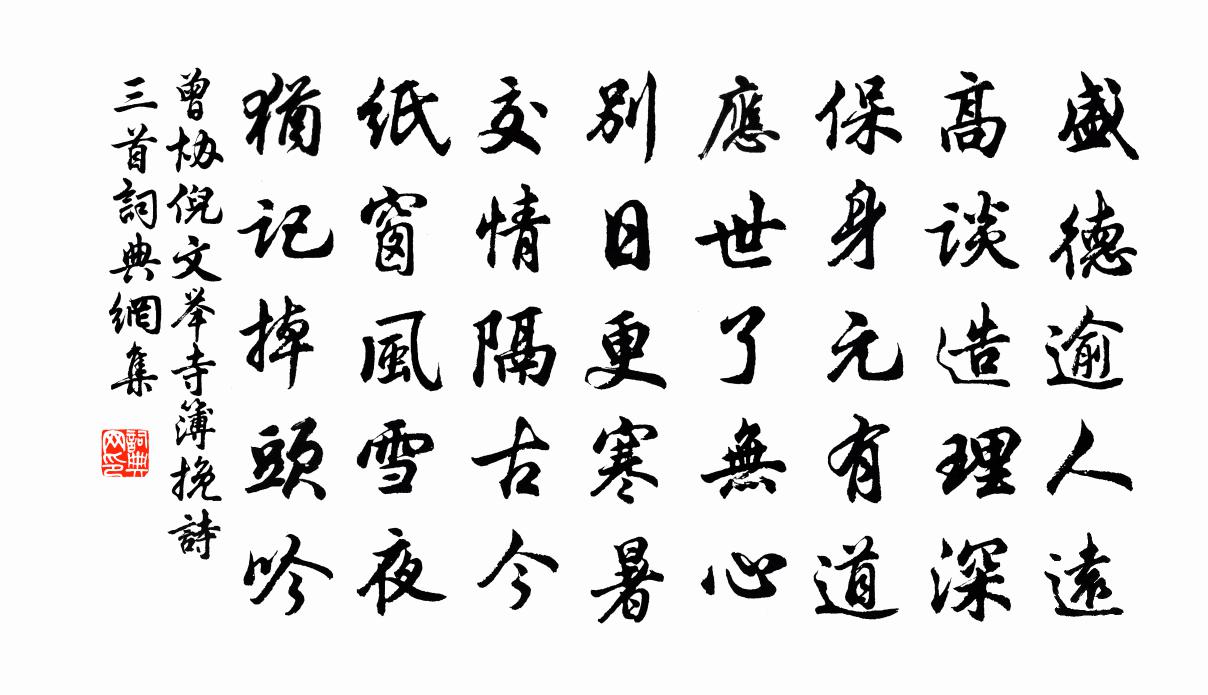 盛德逾人遠
高谈造理深
保身元有道
應世了無心
別日更寒暑
交情隔古今
紙窗風雪夜
猶記掉頭吟
曾协倪文举寺簿挽詩
三首詞典網集
詞典
网印